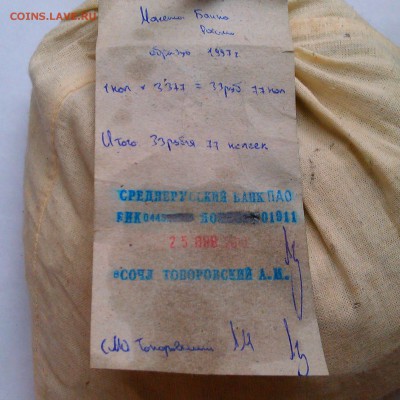 COINS.LAVE.RU
Монеты Банка
России
образца 1997 г
1 коп × 3377 = 33 руб 77 коп
Итого 33 рубля 77 копеек
СРЕДНЕРУССКИЙ БАНК ПАО
БИК 044 ПО 01911
25 ЯНВ
СОЧЛ ТОПОРОВСКИЙ А.И.
Топоровский